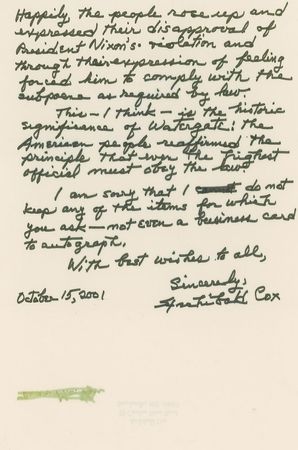 Happily the people rose up and
expressed their disapproval of
President Nixon's violation and
through their expression of feeling
forced him to comply with the
subpoena as required by law.
This - I think - is the historic
significance of Watergate: the
American people reaffirmed the
principle that even the highest
official must obey the law.
I am sorry that I do not
keep any of the items for which
you ask - not even a business card
to autograph.
With best wishes to all,
Sincerely,
October 15, 2001
Archibald Cox